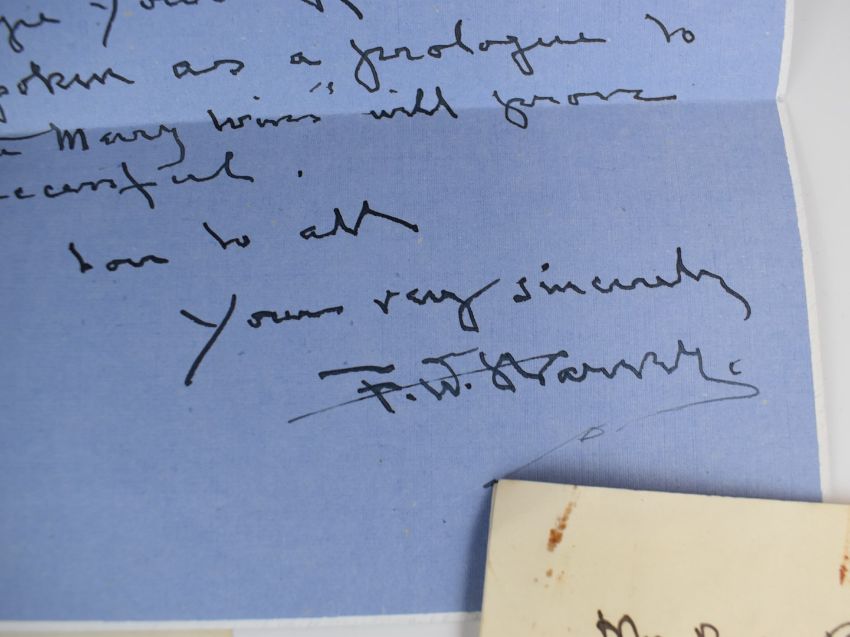 spoken as a prologue to
Mary Wives" will prove
successful.
Love to all
Yours very sincerely
F. W.